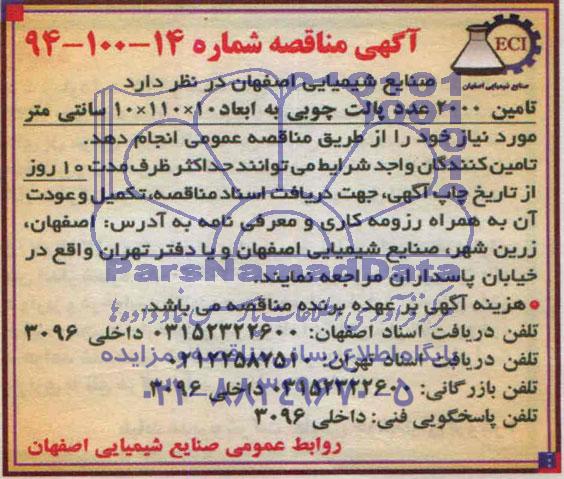 آگهی مناقصه شماره ۱۴-۱۰۰-۹۴
ECI
صنایع شیمیایی اصفهان
صنایع شیمیایی اصفهان در نظر دارد
تامین ۲۰۰۰ عدد پالت چوبی به ابعاد ۱۰×۱۱۰×۱۱۰ سانتی متر
مورد نیاز خود را از طریق مناقصه عمومی انجام دهد.
تامین کنندگان واجد شرایط می توانند حداکثر ظرف مدت ۱۰ روز
از تاریخ چاپ آگهی، جهت دریافت اسناد مناقصه، تکمیل و عودت
آن به همراه رزومه کاری و معرفی نامه به آدرس: اصفهان،
زرین شهر، صنایع شیمیایی اصفهان و یا دفتر تهران واقع در
خیابان پاسداران مراجعه نمایند.
ParsNamadData
هزینه آگهی بر عهده برنده مناقصه می باشد.
تلفن دریافت اسناد اصفهان: ۰۳۱۵۲۲۲۲۶۰۰ داخلی ۳۰۹۶
تلفن دریافت اسناد تهران:
پایگاه اطلاع رسانی مناقصه و مزایده
تلفن بازرگانی: داخلی ۳۰۹۶
۰۲۱-۸۸۳۴۹۶۷۰-۵
تلفن پاسخگویی فنی: داخلی ۳۰۹۶
روابط عمومی صنایع شیمیایی اصفهان